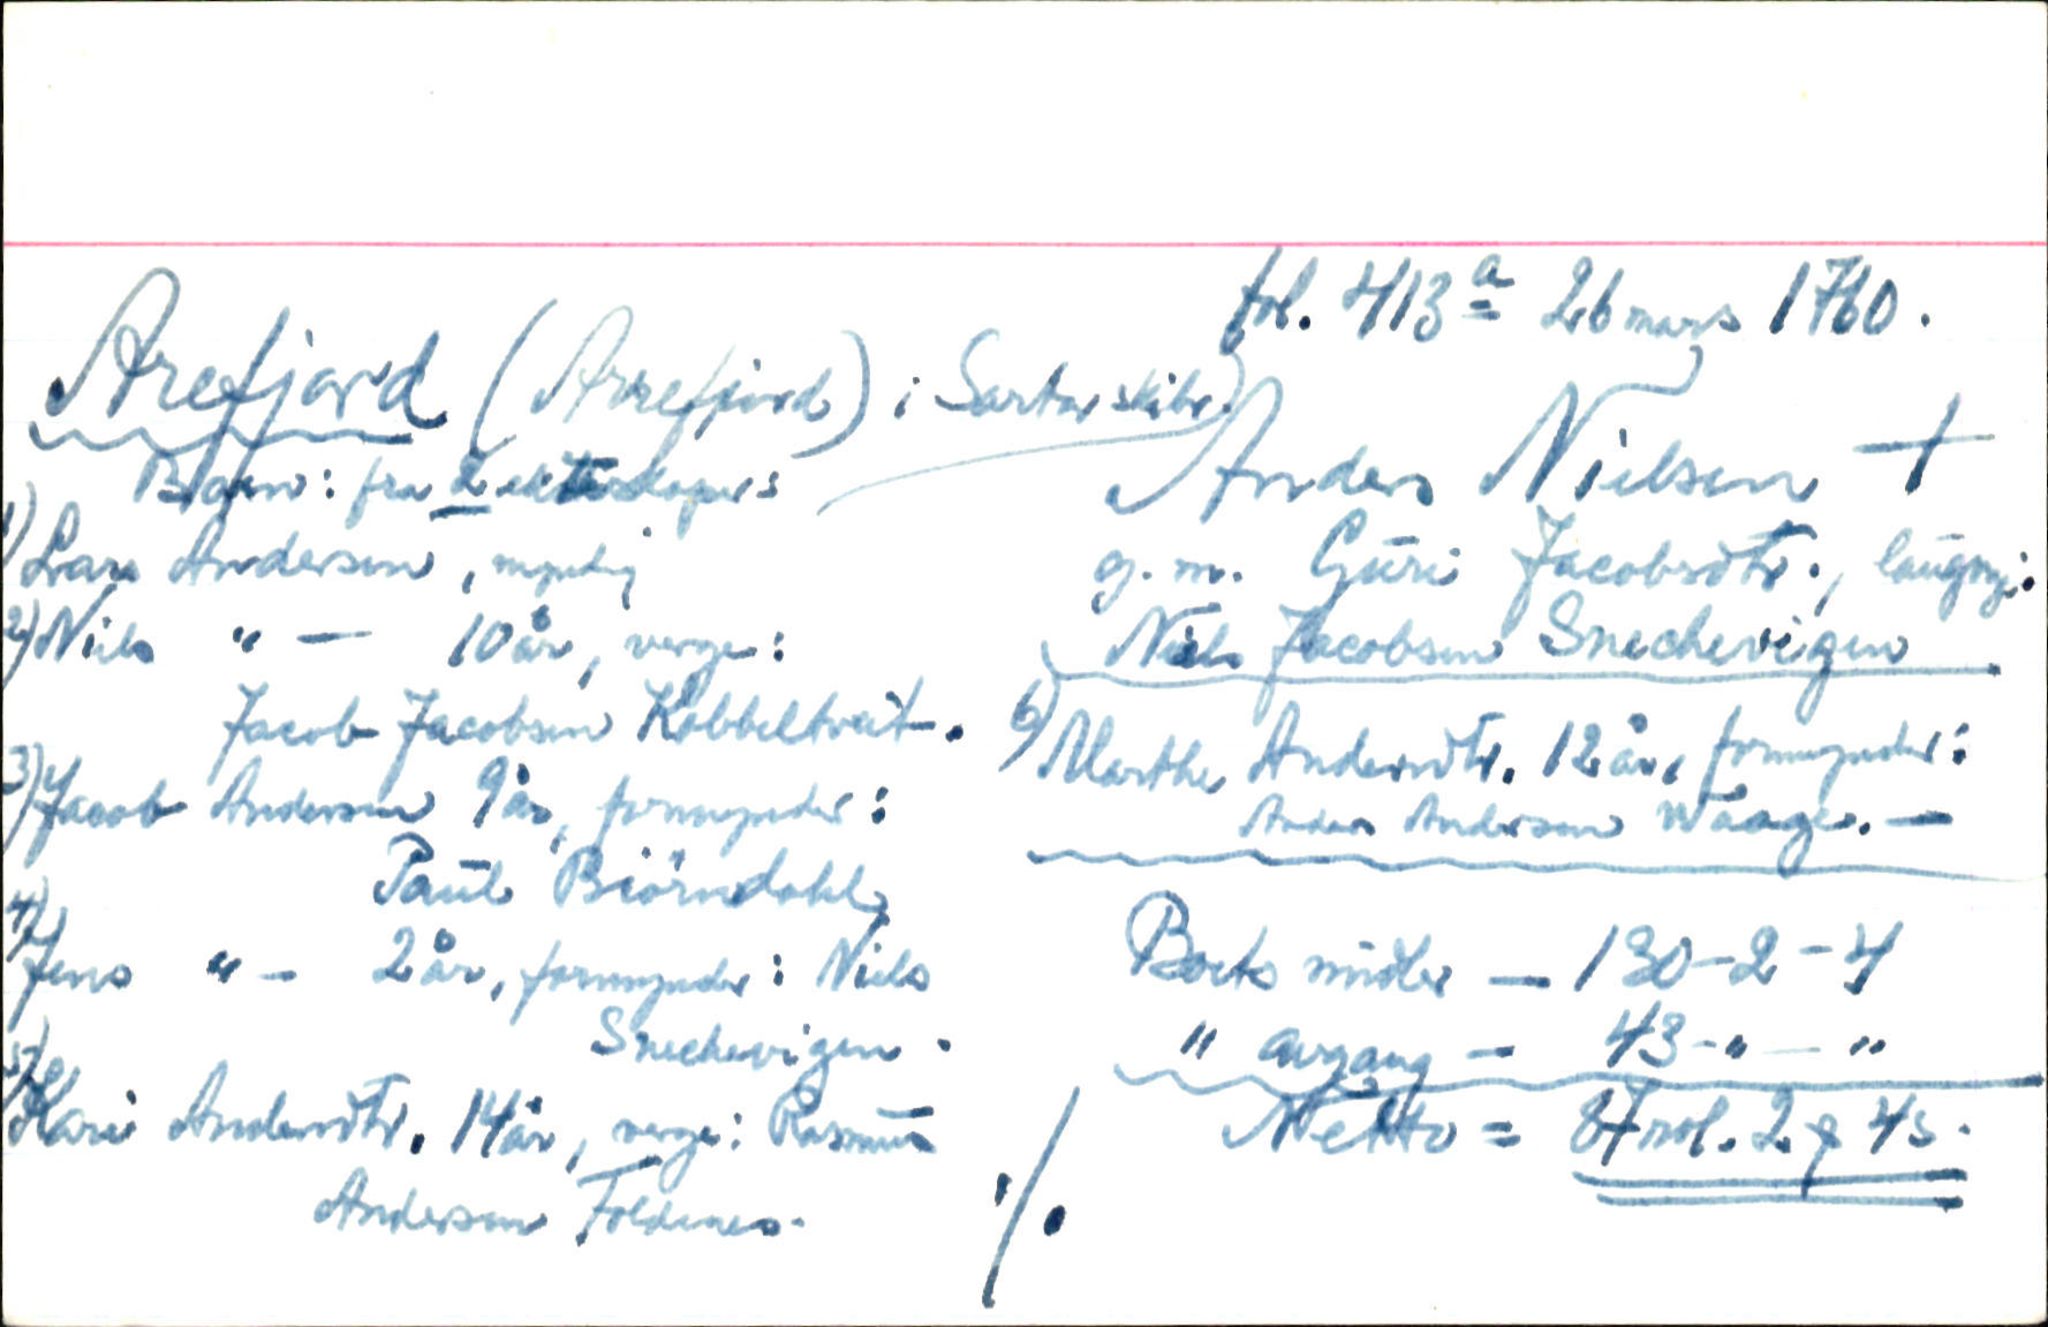 fol. 413 a 26 mars 1760.
Arefjord (Arrefjord) i Sartor skibr.
Anders Nielsen +
g. m. Guri Jacobsdtr., laugv.:
Niels Jacobsen Snechevigen
Børn: fra 2 ekteskaper:
1) Lars Andersen, myndig
2) Niels " — 10 år, verge:
Jacob Jacobsen Kobbeltveit.
3) Jacob Andersen 9 år, formynder:
Paul Biörndahl
4) Jens " — 2 år, formynder: Niels
Snechevigen.
5) Kari Andersdtr. 14 år, verge: Rasmus
Andersen Foldnes.
%
6) Marthe Andersdtr. 12 år, formynder:
Anders Andersen Waage. —
Boets midler — 130 - 2 - 4
" avgang — 43 - " — "
Netto = 87 rdl. 2 q 4 s.